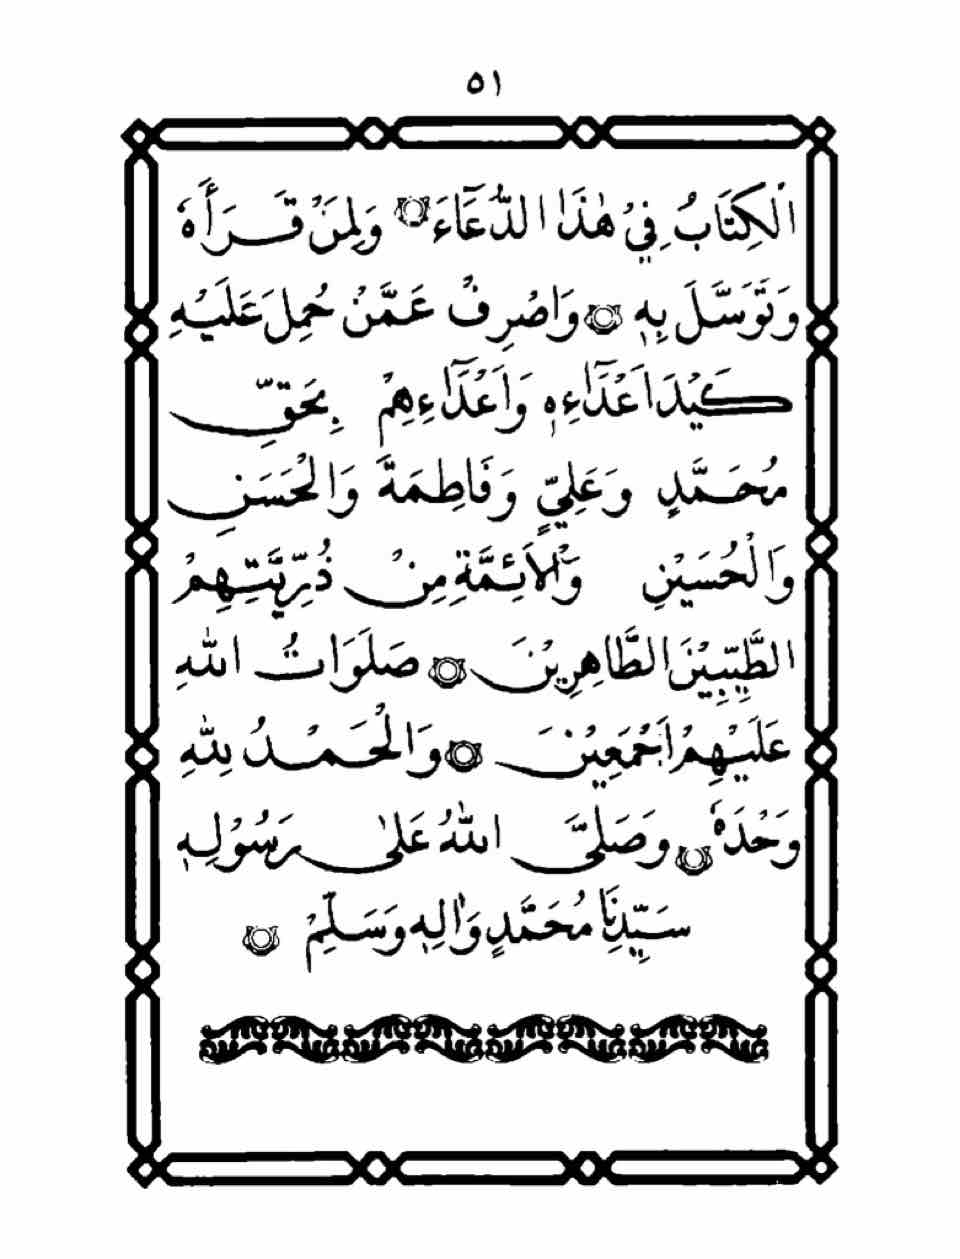 ٥١
الْكِتَابُ فِيْ هٰذَا الدُّعَآءَ ۞ وَلِمَنْ قَرَأَهٗ
وَتَوَسَّلَ بِهٖ ۞ وَاصْرِفْ عَمَّنْ حُمِلَ عَلَيْهِ
كَيْدَ اَعْدَآءِهٖ وَاَعْدَآءِهِمْ بِحَقِّ
مُحَمَّدٍ وَعَلِيٍّ وَفَاطِمَةَ وَالْحَسَنِ
وَالْحُسَيْنِ وَالْاَئِمَّةِ مِنْ ذُرِّيَّتِهِمْ
الطَّيِّبِيْنَ الطَّاهِرِيْنَ ۞ صَلَوَاتُ اللهِ
عَلَيْهِمْ اَجْمَعِيْنَ ۞ وَالْحَمْدُ لِلّٰهِ
وَحْدَهٗ ۞ وَصَلَّى اللهُ عَلٰى رَسُوْلِهٖ
سَيِّدِنَا مُحَمَّدٍ وَاٰلِهٖ وَسَلِّمْ ۞